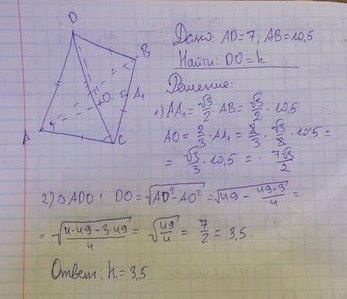 D
B
O
A₁
A
C
Дано: AD=7, AB=10,5
Найти: DO=h
Решение:
1) AA₁ = √3/2 · AB = √3/2 · 10,5
AO = 2/3 · AA₁ = 2/3 · √3/2 · 10,5 =
= √3/3 · 10,5 = 7√3/2
2) △ADO: DO = √(AD² - AO²) = √(49 - 49·3/4) =
= √((4·49 - 3·49)/4) = √(49/4) = 7/2 = 3,5.
Ответ: h = 3,5